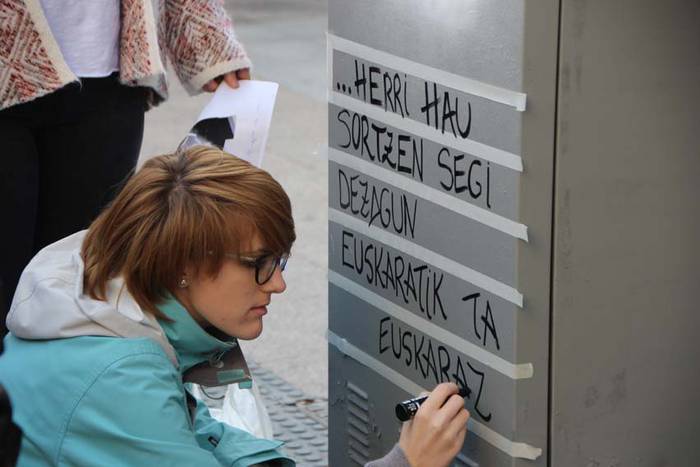 ...HERRI HAU
SORTZEN SEGI
DEZAGUN
EUSKARATIK TA
EUSKARAZ